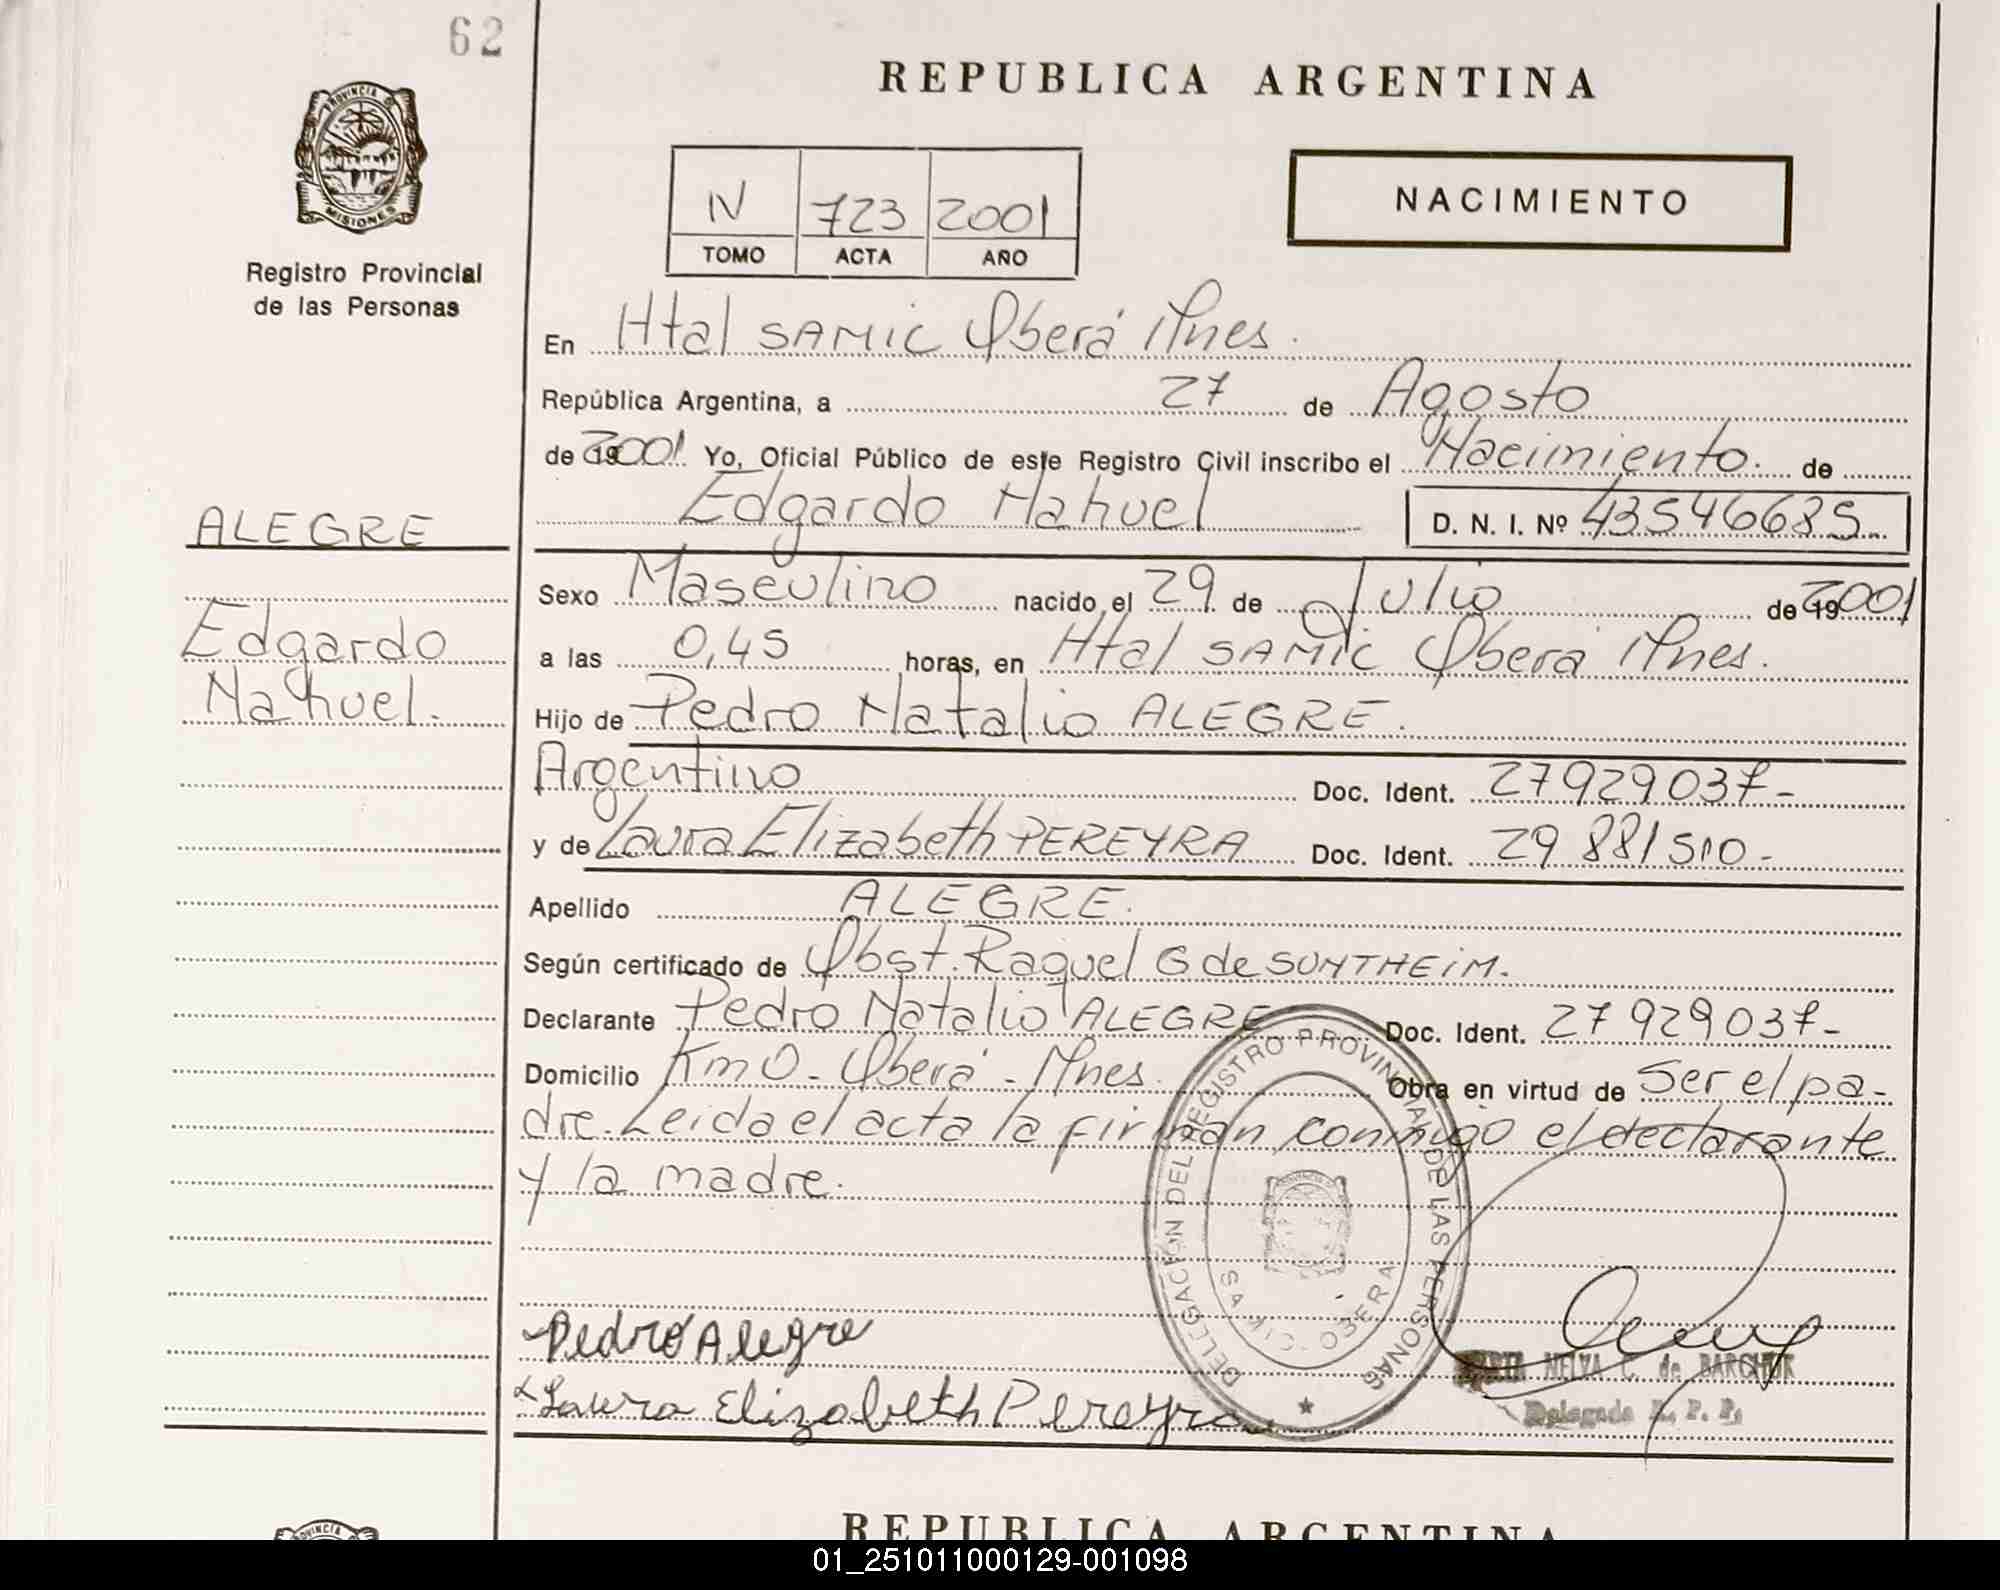 62
REPUBLICA ARGENTINA
PROVINCIA DE
MISIONES
Registro Provincial
de las Personas
IV 723 2001
TOMO ACTA AÑO
NACIMIENTO
En Htal SAMIC Oberá Mnes.
República Argentina, a 27 de Agosto
de 2001 Yo, Oficial Público de este Registro Civil inscribo el Nacimiento. de
Edgardo Nahuel D. N. I. Nº 43546685
ALEGRE
Edgardo
Nahuel.
Sexo Masculino nacido el 29 de Julio de 19 2001
a las 0,45 horas, en Htal SAMIC Oberá Mnes.
Hijo de Pedro Natalio ALEGRE.
Argentino Doc. Ident. 27929037-
y de Laura Elizabeth PEREYRA Doc. Ident. 29 881510-
Apellido ALEGRE.
Según certificado de Obst. Raquel G de SONTHEIM.
Declarante Pedro Natalio ALEGRE Doc. Ident. 27 929037-
Domicilio Km 0 - Oberá - Mnes. Obra en virtud de Ser el pa-
dre. Leida el acta la firman conmigo el declarante
y la madre.
DELEGACION DEL REGISTRO PROVINCIAL DE LAS PERSONAS
OBERA
Pedro Alegre
Laura Elizabeth Pereyra
NELVA C. de BARCHUK
Delegada R. P. P.
PROVINCIA D
REPUBLICA ARGENTINA
01_251011000129-001098